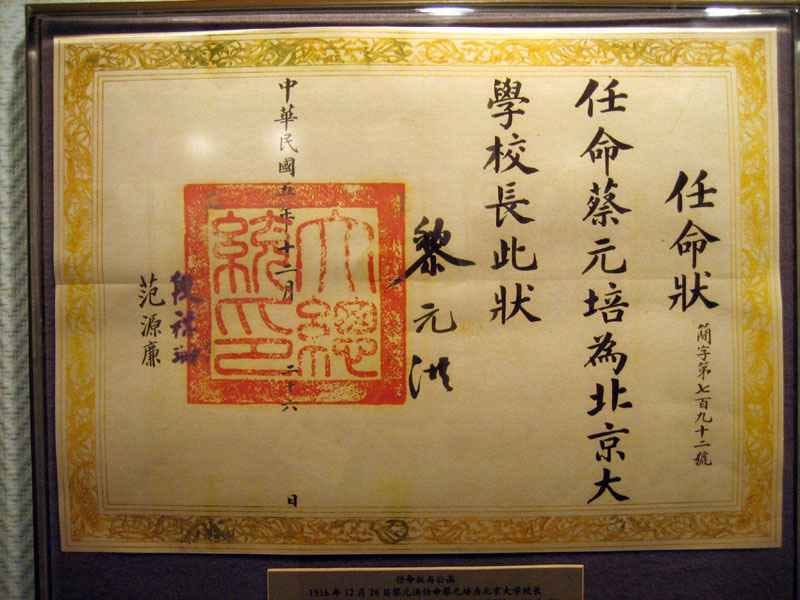 任命狀
簡字第七百九十二號
任命蔡元培為北京大
學校長此狀
黎元洪
大總統印
中華民國五年十二月二十六日
段祺瑞
范源廉
任命狀與公函
1916年12月26日黎元洪任命蔡元培為北京大學校長